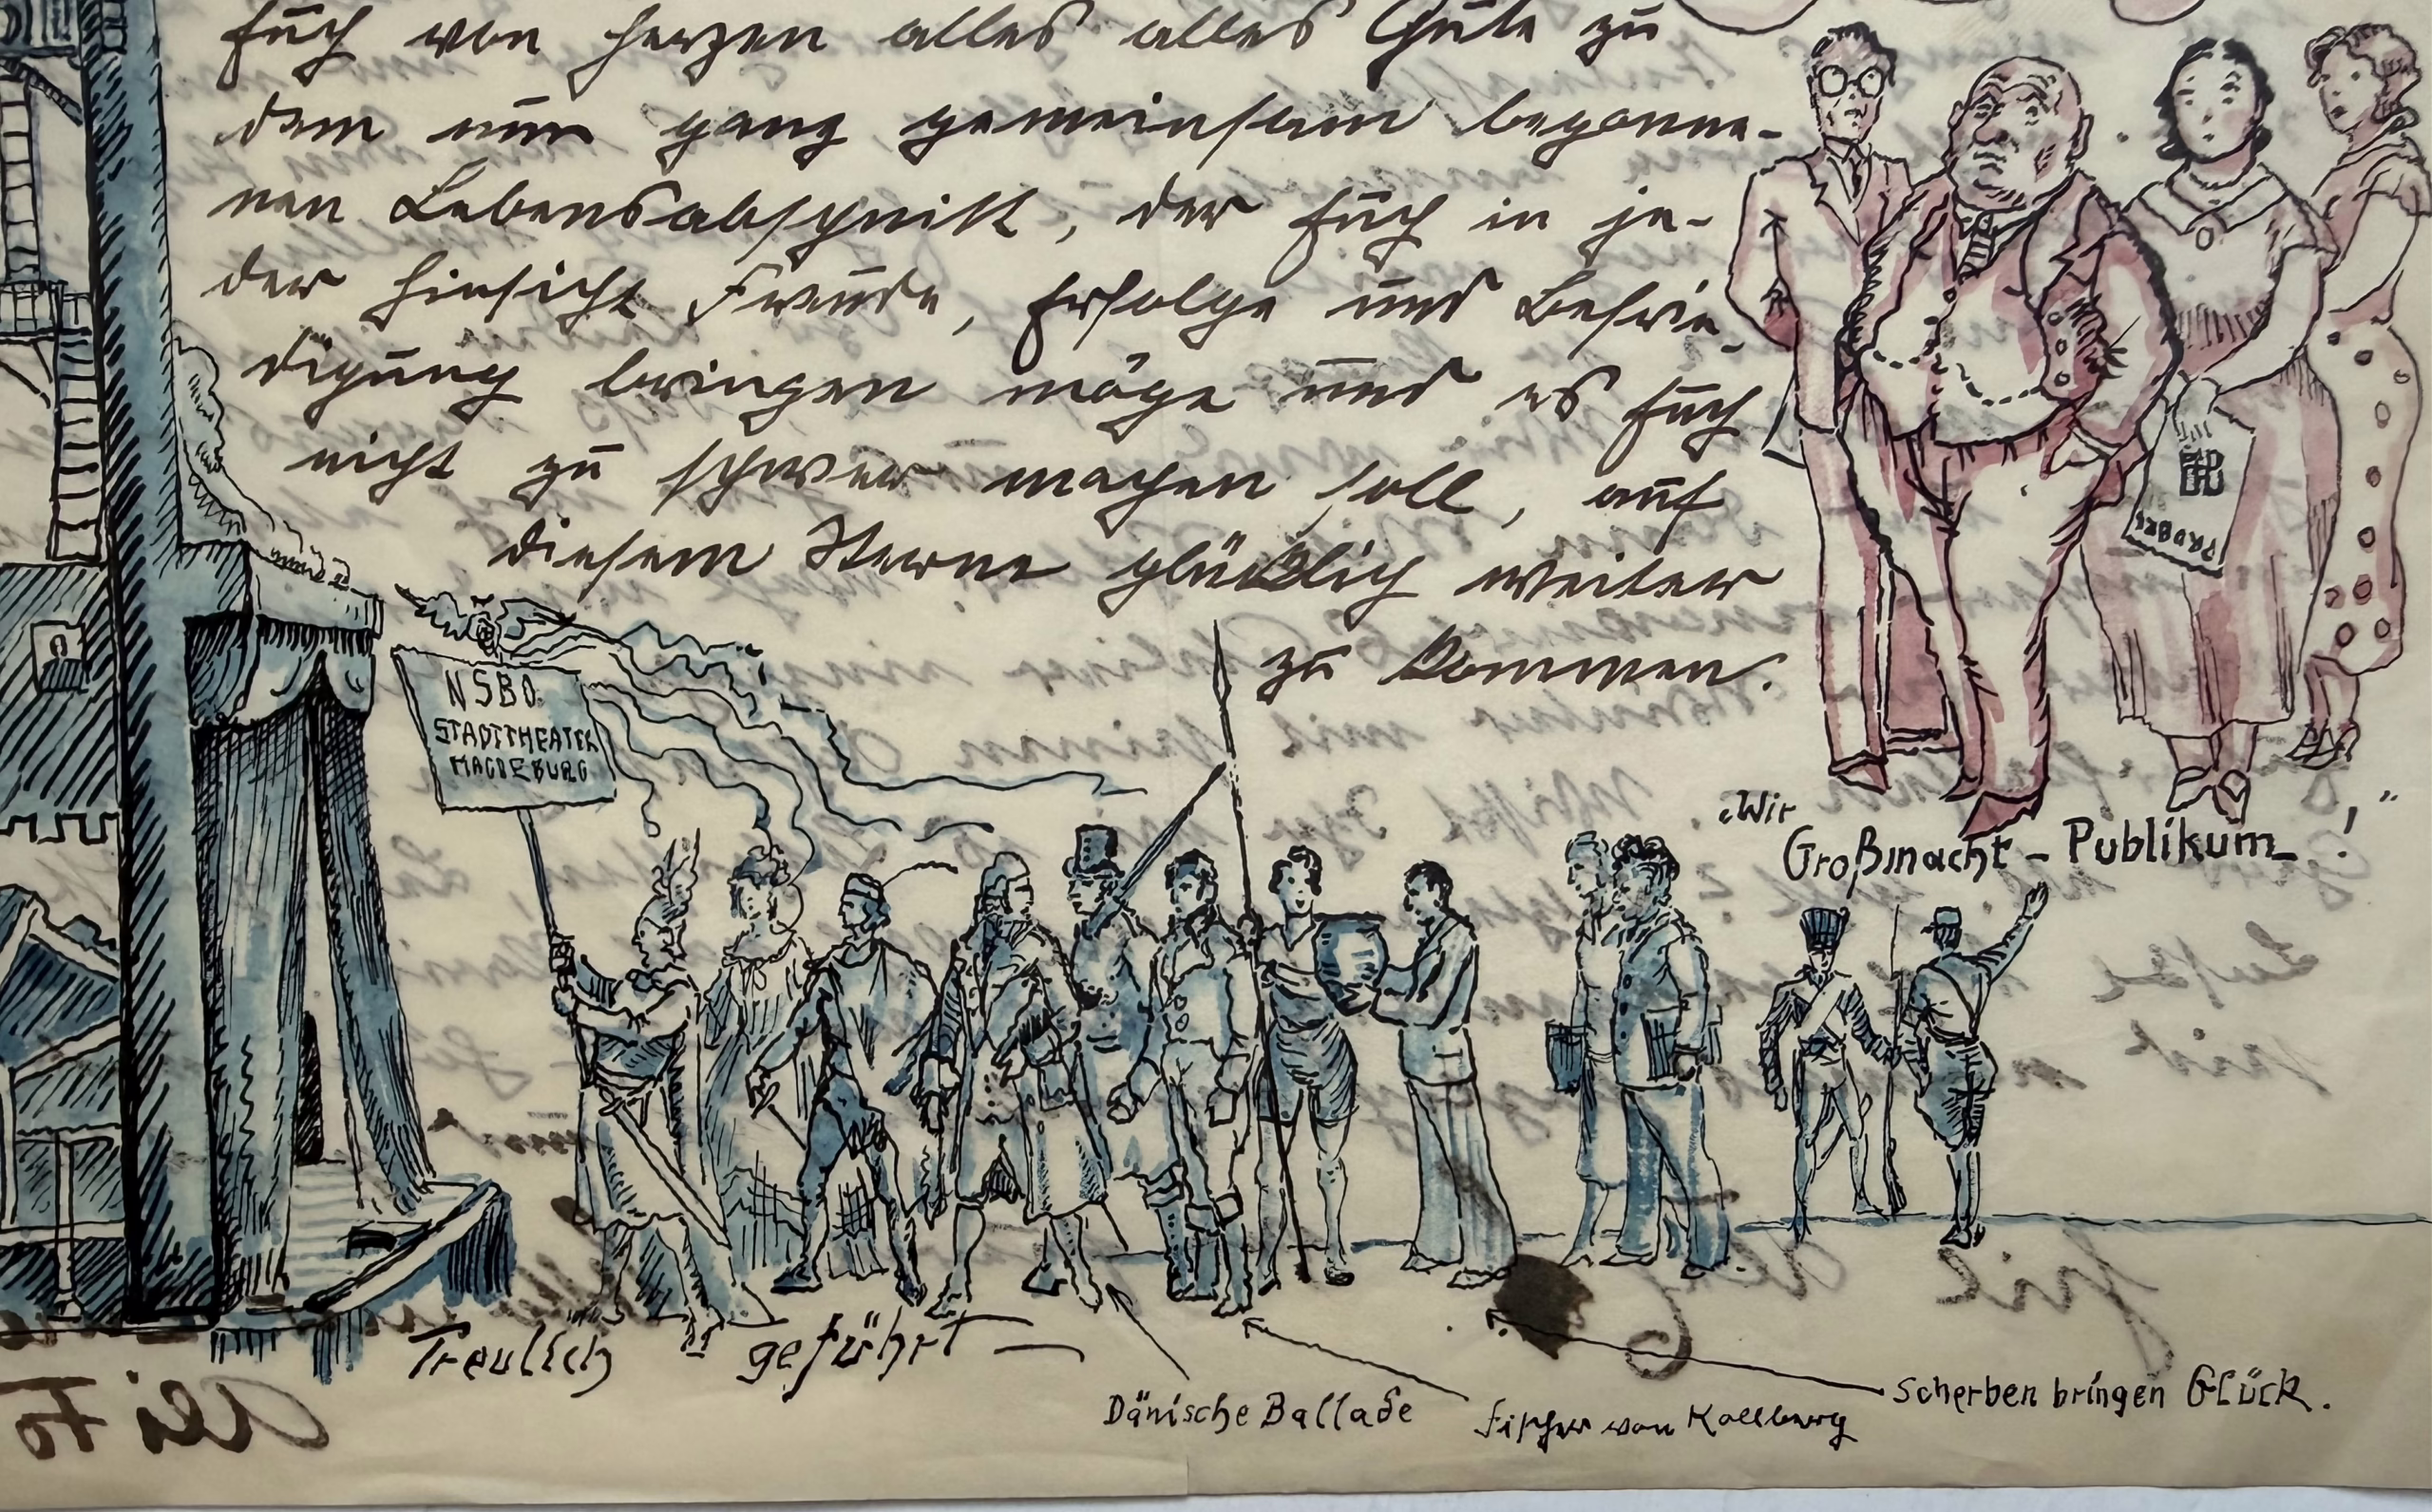 Euch von Herzen alles alles Gute zu
dem nun ganz gemeinsam begonne-
nen Lebensabschnitt, der Euch in je-
der Hinsicht Freude, Erfolge und Befrie-
digung bringen möge und es Euch
nicht zu schwer machen soll, auf
diesem Sterne glücklich weiter
zu kommen.
NSBO.
STADTTHEATER
MAGDEBURG
„Wir
Großmacht – Publikum – !"
Treulich geführt —
Dänische Ballade
Fischer von Kallberg
Scherben bringen Glück.